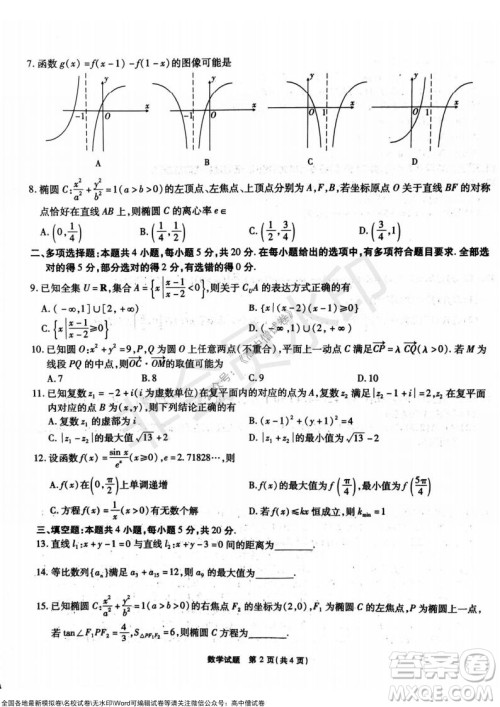 7. 函数 g(x)=f(x-1)-f(1-x)的图像可能是
y y y y
-1 O x -1 O x O 1 x O 1 x
A B C D
8. 椭圆 C: x²/a²+y²/b²=1(a>b>0)的左顶点、左焦点、上顶点分别为 A,F,B,若坐标原点 O 关于直线 BF 的对称
点恰好在直线 AB 上,则椭圆 C 的离心率 e∈
A. (0, 1/4) B. (1/4, 1/2) C. (1/2, 3/4) D. (3/4, 1)
二、多项选择题:本题共 4 小题,每小题 5 分,共 20 分。在每小题给出的选项中,有多项符合题目要求。全部选
对的得 5 分,部分选对的得 2 分,有选错的得 0 分.
9. 已知全集 U=R,集合 A={x|(x-1)/(x-2)<0},则关于∁ᵤA 的表达方式正确的有
A. (-∞,1]∪[2,+∞) B. {x|(x-1)(x-2)≥0}
C. {x|(x-1)/(x-2)≥0} D. (-∞,1)∪(2,+∞)
10. 已知圆 O:x²+y²=9,P,Q 为圆 O 上任意两点(不重合),平面上一动点 C 满足 CP=λCQ(λ>0),若 M 为
线段 PQ 的中点,则OC·OM的取值可能为
A. 7 B. 8 C. 9 D. 10
11. 已知复数 z₁=-2+i(i为虚数单位)在复平面内对应的点为 P₁,复数 z₂ 满足|z₂-1+i|=2,z₂ 在复平
面内对应的点 P₂ 为(x,y),则下列结论正确的有
A. 复数 z₁ 的虚部为 i B. (x-1)²+(y+1)²=4
C. |z₁-z₂|的最大值为 √13+2 D. |z₁+z₂|的最小值为 √13-2
12. 设函数 f(x)=sin x/eˣ(x≥0),e=2.71828…,则
A. f(x)在(0, π/4)上单调递增 B. f(x)的最大值为 f(π/4),最小值为 f(5π/4)
C. 方程f(x)=0有无数个解 D. 若f(x)≤kx 恒成立,则 kmin=1
三、填空题:本题共 4 小题,每小题 5 分,共 20 分。
14. 等比数列{aₙ}满足
15. 已知椭圆 C: x²/a²+y²/b²=1(a>b>0)的右焦点 F₂ 的坐标为(2,0),
数学试题 第 2 页(共 4 页)
全国各地最新模拟卷\名校试卷\无水印\Word可编辑试卷等请关注微信公众号:高中僧试卷